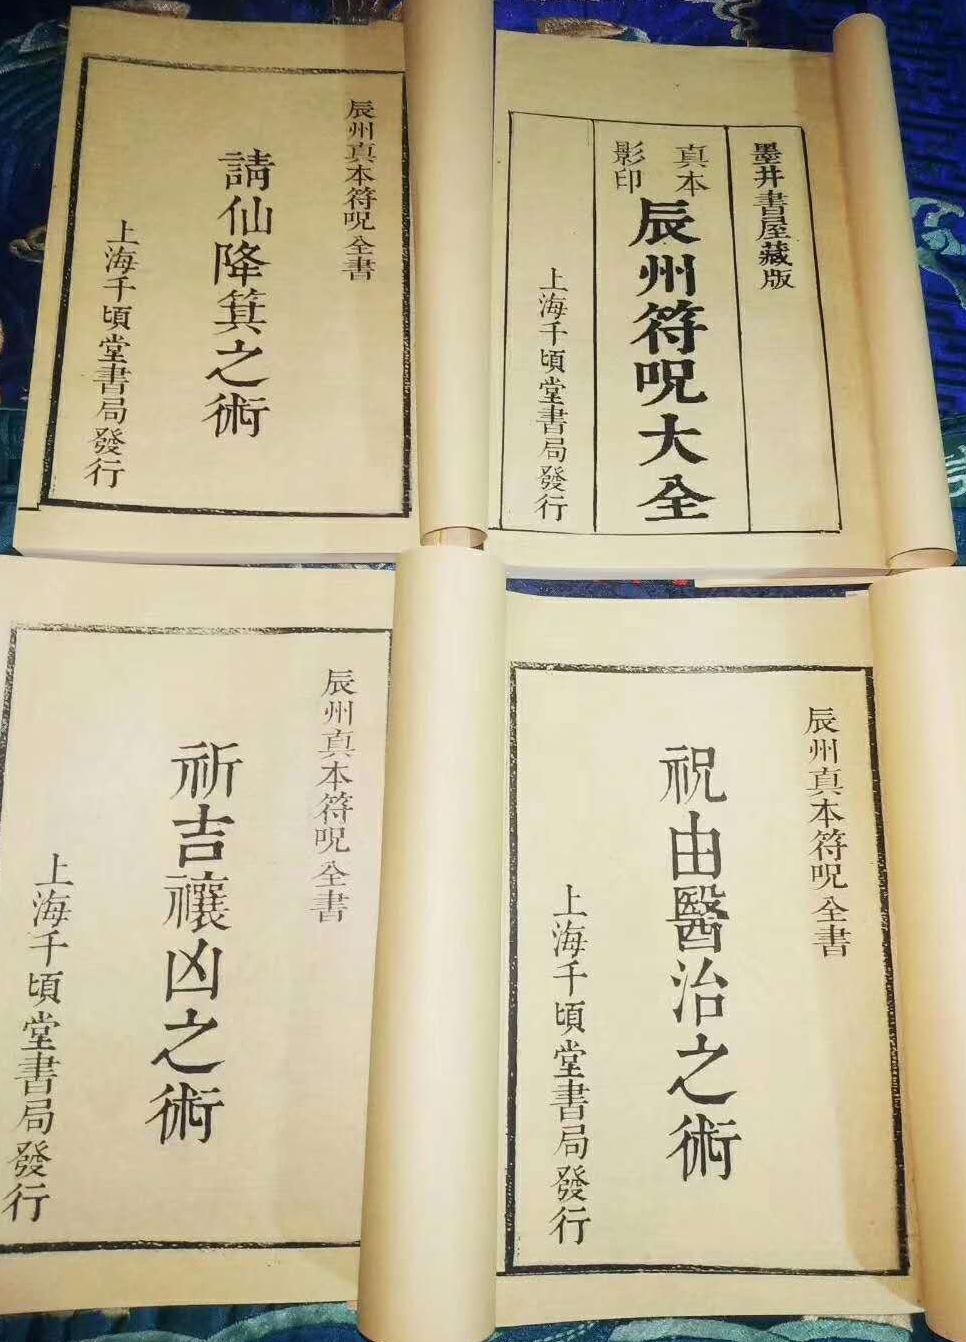 辰州真本符呪全書
請仙降箕之術
上海千頃堂書局發行
墨井書屋藏版
真本
影印
辰州符呪大全
上海千頃堂書局發行
辰州真本符呪全書
祈吉禳凶之術
上海千頃堂書局發行
辰州真本符呪全書
祝由醫治之術
上海千頃堂書局發行